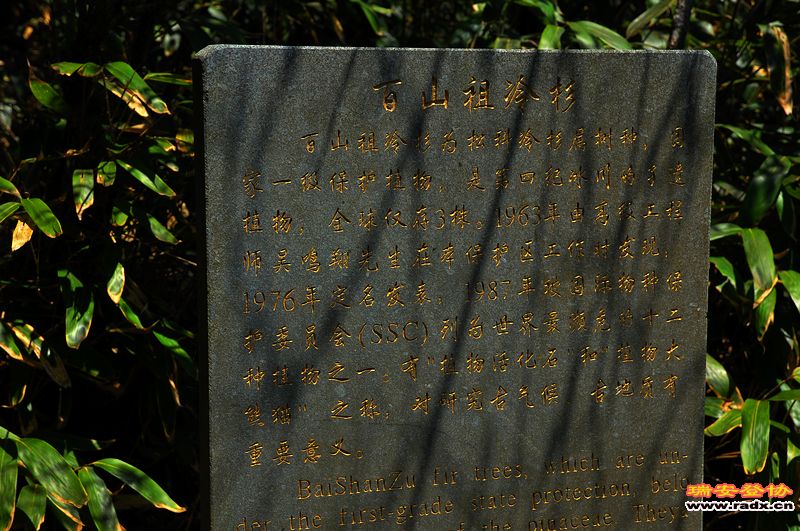 百山祖冷杉
百山祖冷杉为松科冷杉属树种,国
家一级保护植物,是第四纪冰川时孑遗
植物,全球仅存3株。1963年由高级工程
师吴鸣翔先生在本保护区工作时发现,
1976年定名发表,1987年被国际物种保
护委员会(SSC)列为世界最濒危的十二
种植物之一。有"植物活化石"和"植物大
熊猫"之称,对研究古气候 古地质有
重要意义。
BaiShanZu fir trees, which are un-
der the first-grade state protection, belo
of the pinaceae. They
瑞安登协
www.radx.cn